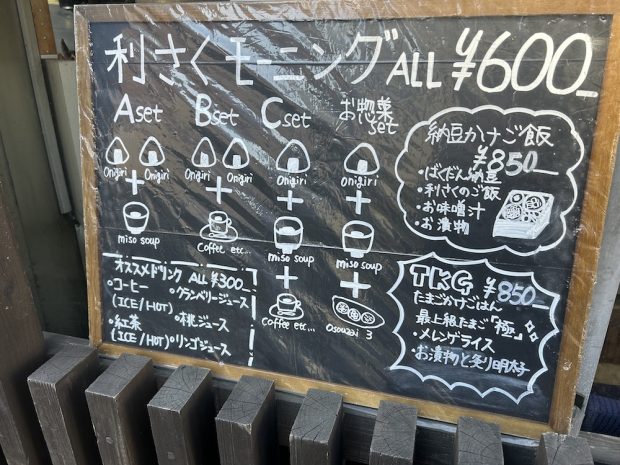 利さくモーニング ALL ¥600
Aset
Onigiri Onigiri
+
miso soup
Bset
Onigiri Onigiri
+
Coffee etc...
Cset
Onigiri
+
miso soup
+
Coffee etc...
お惣菜
set
Onigiri
+
miso soup
+
Osouzai 3
オススメドリンク ALL ¥300
・コーヒー ・クランベリージュース
(ICE/HOT)
・紅茶 ・桃ジュース
(ICE/HOT)・リンゴジュース
納豆かけご飯
¥850
・ばくだん納豆
・利さくのご飯
・お味噌汁
・お漬物
TKG ¥850
たまごかけごはん
最上級たまご「極」
・メレンゲライス
・お漬物と炙り明太子